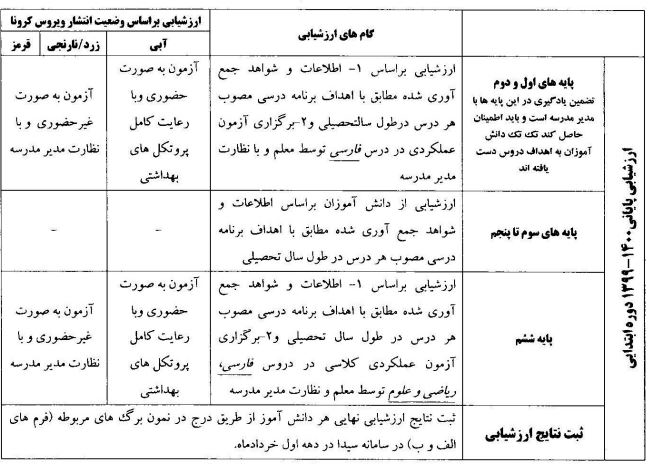 گام های ارزشیابی
ارزشیابی براساس وضعیت انتشار ویروس کرونا
آبی
زرد/نارنجی
قرمز
ارزشیابی پایانی ۱۴۰۰-۱۳۹۹ دوره ابتدایی
پایه های اول و دوم
تضمین یادگیری در این پایه ها با
مدیر مدرسه است و باید اطمینان
حاصل کند تک تک دانش
آموزان به اهداف دروس دست
یافته اند
ارزشیابی براساس ۱- اطلاعات و شواهد جمع
آوری شده مطابق با اهداف برنامه درسی مصوب
هر درس درطول سالتحصیلی و۲-برگزاری آزمون
عملکردی در درس فارسی توسط معلم و با نظارت
مدیر مدرسه
آزمون به صورت
حضوری وبا
رعایت کامل
پروتکل های
بهداشتی
آزمون به صورت
غیرحضوری و با
نظارت مدیر مدرسه
پایه های سوم تا پنجم
ارزشیابی از دانش آموزان براساس اطلاعات و
شواهد جمع آوری شده مطابق با اهداف برنامه
درسی مصوب هر درس در طول سال تحصیلی
-
-
پایه ششم
ارزشیابی براساس ۱- اطلاعات و شواهد جمع
آوری شده مطابق با اهداف برنامه درسی مصوب
هر درس در طول سال تحصیلی و۲-برگزاری
آزمون عملکردی کلاسی در دروس فارسی،
ریاضی و علوم توسط معلم و نظارت مدیر مدرسه
آزمون به صورت
حضوری وبا
رعایت کامل
پروتکل های
بهداشتی
آزمون به صورت
غیرحضوری و با
نظارت مدیر مدرسه
ثبت نتایج ارزشیابی
ثبت نتایج ارزشیابی نهایی هر دانش آموز از طریق درج در نمون برگ های مربوطه (فرم های
الف و ب) در سامانه سیدا در دهه اول خردادماه.